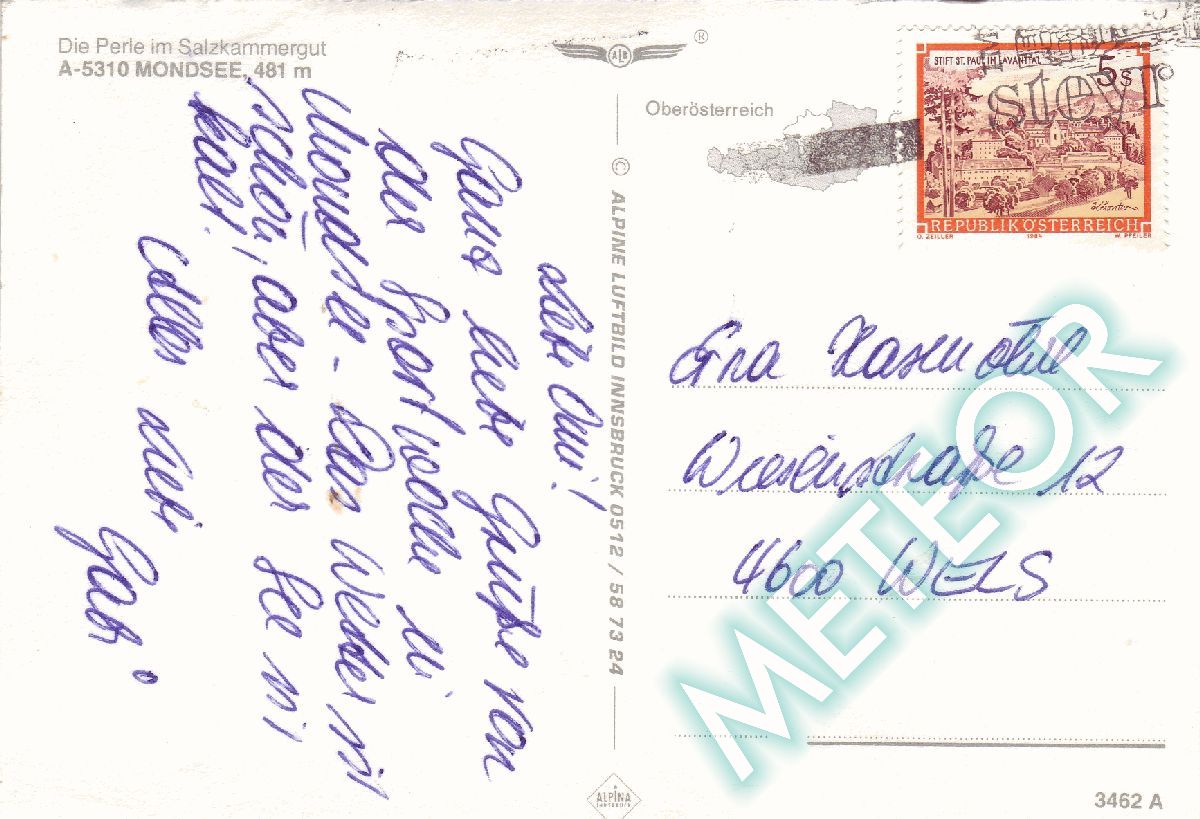 Die Perle im Salzkammergut
A-5310 MONDSEE, 481 m
Liebe Omi!
Ganz liebe Grüße von
der Sportwoche in
Mondsee - Das Wetter ist
schön, aber der See ist
kalt.
Alles Liebe
Gabi
© ALPINE LUFTBILD INNSBRUCK 0512 / 58 73 24
ALPINA
INNSBRUCK
ALB
®
Oberösterreich
STIFT ST. PAUL IM LAVANTTAL
5 S
REPUBLIK ÖSTERREICH
O. ZEILLER 1984 W. PFEILER
steyr
Wiesenstraße 12
4600 WELS
METEOR
3462 A